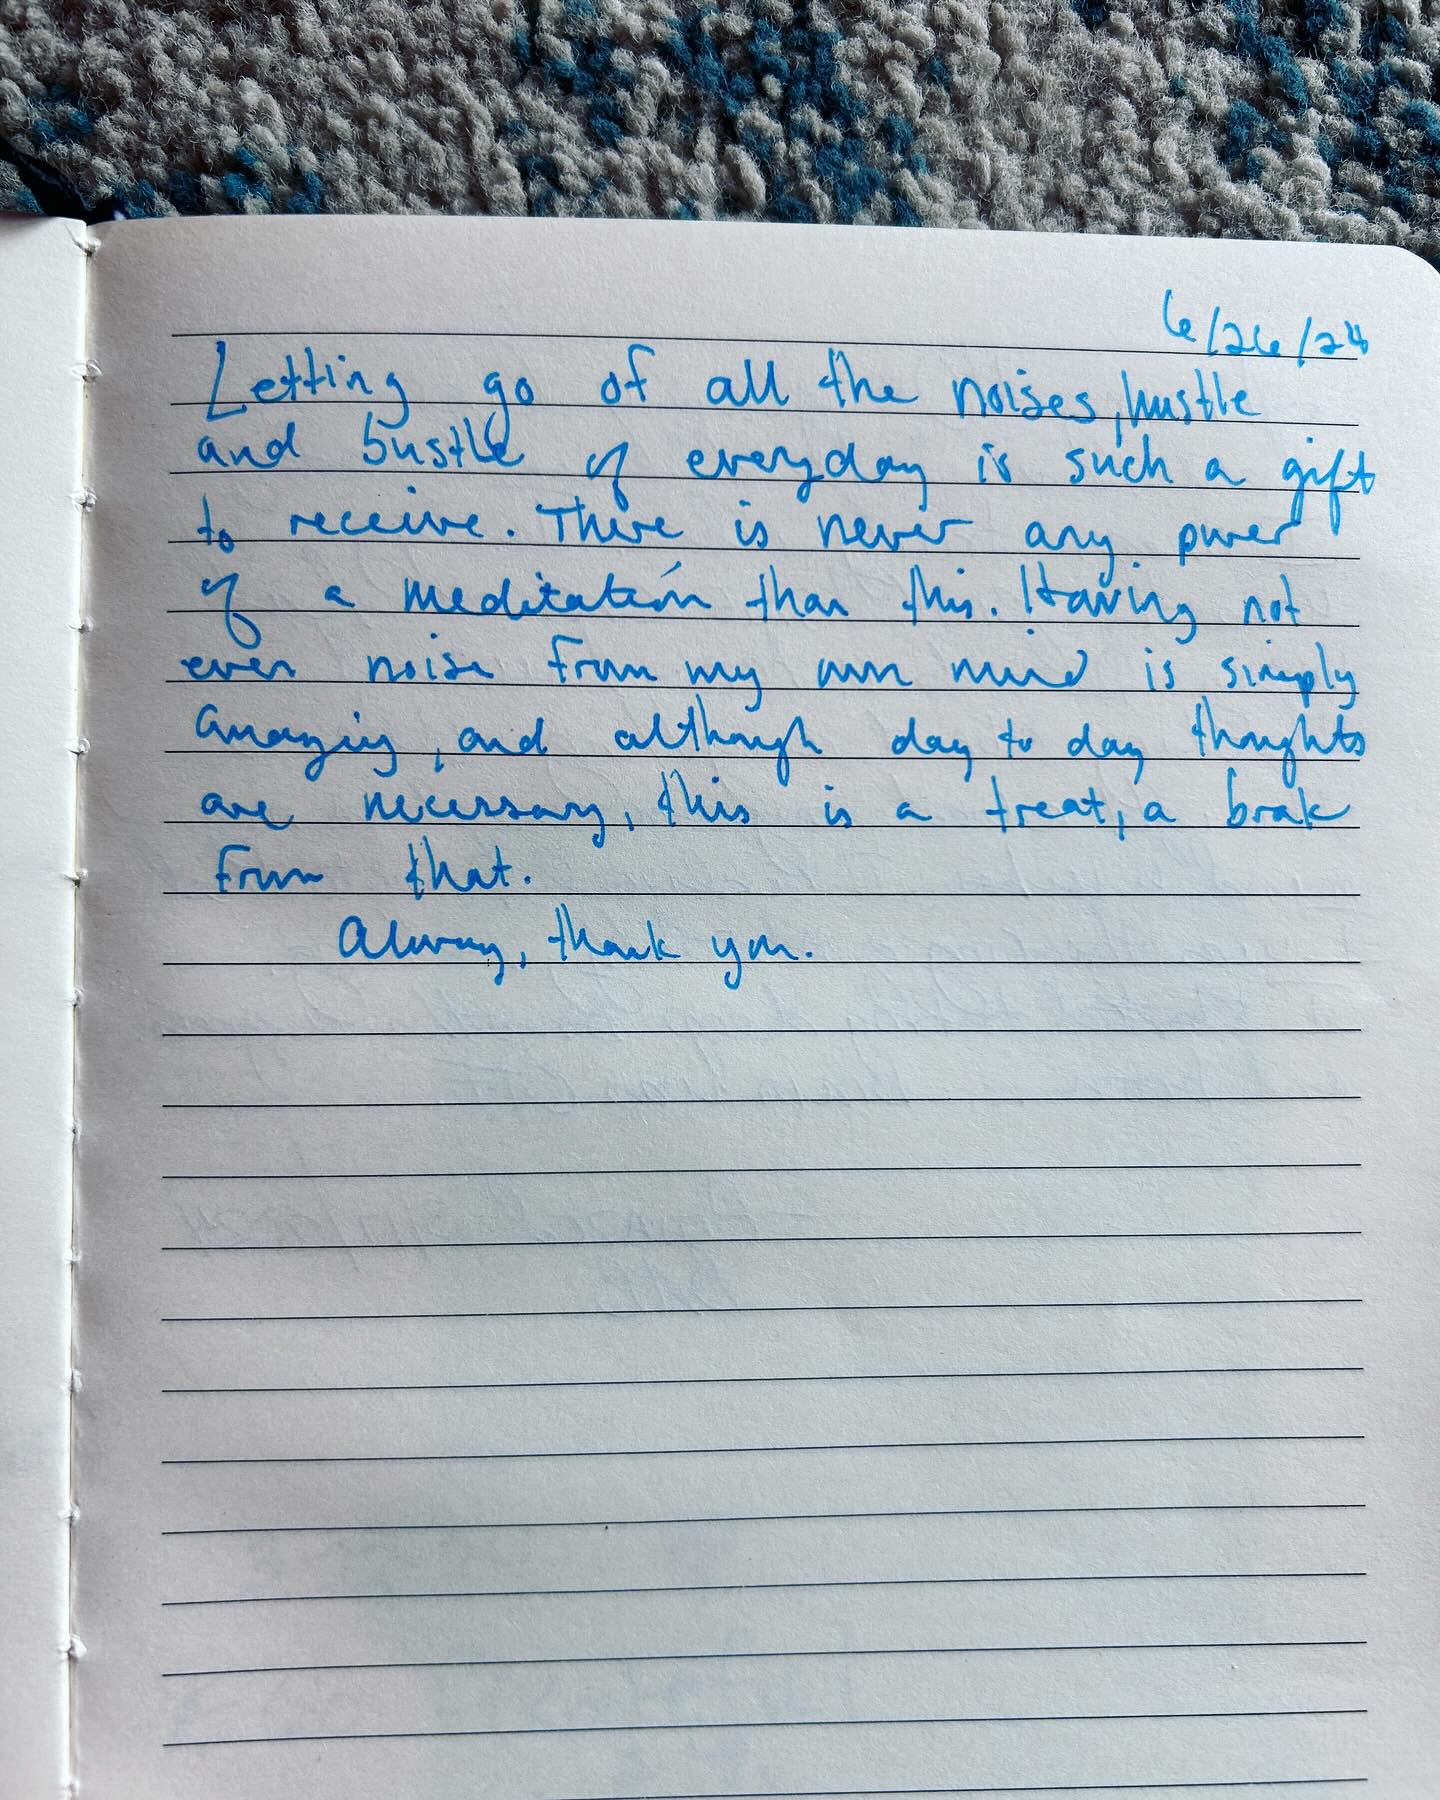 6/26/24
Letting go of all the noises, hustle
and bustle of everyday is such a gift
to receive. There is never any purer
of a meditation than this. Having not
even noise from my own mind is simply
amazing, and although day to day thoughts
are necessary, this is a treat, a break
from that.
Always, thank you.